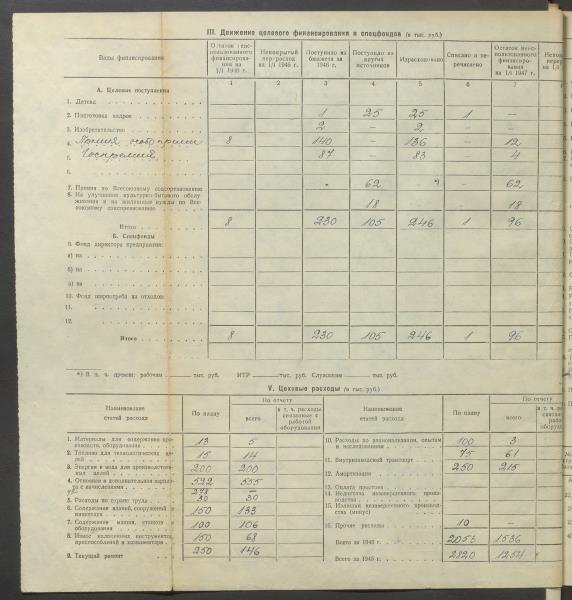 III. Движение целевого финансирования и спецфондов (в тыс. руб.)
Виды финансирования
Остаток неиспользованного финансирования на 1/I 1946 г.
Непокрытый перерасход на 1/I 1946 г.
Поступило из бюджета за 1946 г.
Поступило из других источников
Израсходовано
Списано и перечислено
Остаток неиспользованного финансирования на 1/I 1947 г.
1 2 3 4 5 6 7
А. Целевые поступления
1. Детсад
2. Подготовка кадров 1 25 25 1 —
3. Изобретательство 2 — 2 — —
4. 8 140 — 136 — 12
5. Госпремия 87 — 83 — 4
6.
7. Премия по Всесоюзному соцсоревнованию - 62 - *) — 62
8. На улучшение культурно-бытового обслуживания и на жилищные нужды по Всесоюзному соцсоревнованию 18 18
Итого 8 230 105 246 1 96
Б. Спецфонды
9. Фонд директора предприятия:
а) на
б) на
в) на
10. Фонд ширпотреба из отходов
11.
12.
Итого 8 230 105 246 1 96
*) В т. ч. премии: рабочим тыс. руб. ИТР тыс. руб. Служащим тыс. руб.
V. Цеховые расходы (в тыс. руб.)
Наименование статей расхода
По плану
По отчету
всего
в т. ч. расходы связанные с работой оборудования
Наименование статей расхода
По плану
По отчету
всего
1. Материалы для содержания производств. оборудования 13 5
2. Топливо для технологических целей 15 14
3. Энергия и вода для производственных целей 200 200
4. Основная и дополнительная зарплата с начислениями 522 555
5. Расходы по охране труда 30 30
6. Содержание зданий, сооружений и инвентаря 150 133
7. Содержание машин, станков и оборудования 100 106
8. Износ малоценных инструментов, приспособлений и инвентаря 150 68
9. Текущий ремонт 250 146
10. Расходы по рационализации, опытам и исследованиям 100 3
11. Внутризаводской транспорт 75 61
12. Амортизация 250 215
13. Оплата простоев
14. Недостача незавершенного производства
15. Излишки незавершенного производства (минус)
16. Прочие расходы 10 —
Всего за 1946 г. 2053 1536
Всего за 1945 г. 2820 1254